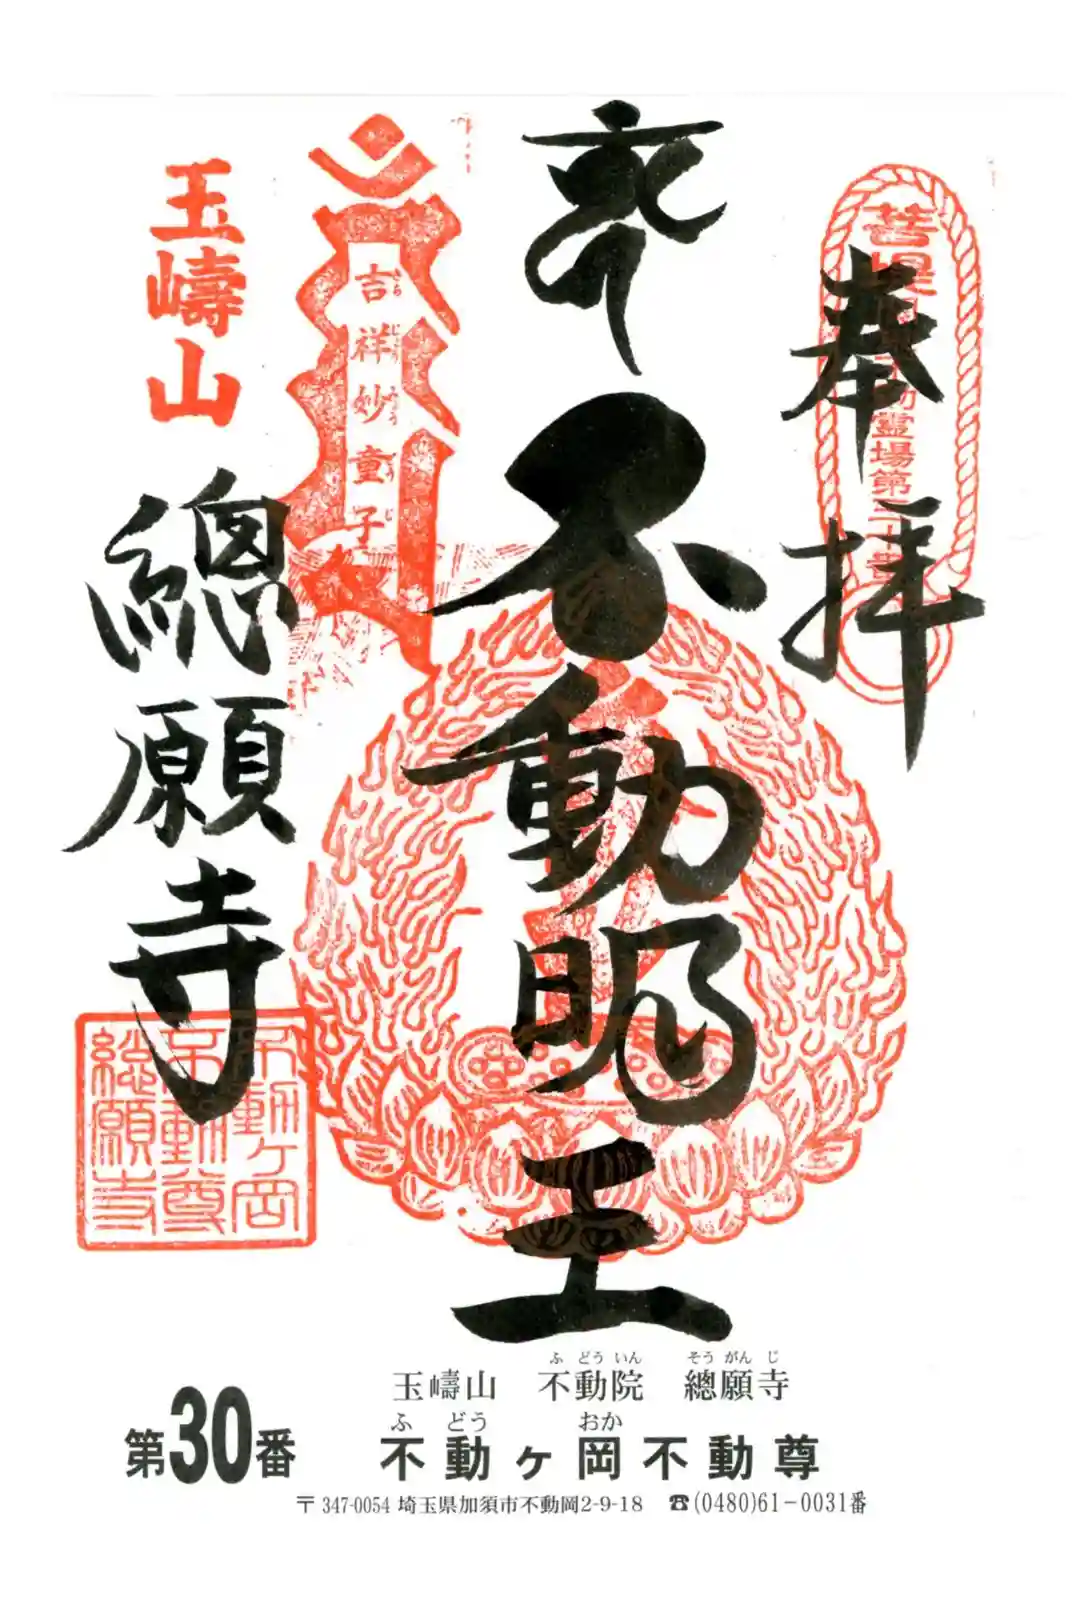 奉拝
不動明王
吉祥妙童子
玉嶹山
總願寺
不動ヶ岡
不動尊
總願寺
ふどういん そうがんじ
玉嶹山 不動院 總願寺
ふどう おか
第30番 不動ヶ岡不動尊
〒347-0054 埼玉県加須市不動岡2-9-18 ☎(0480)61-0031番